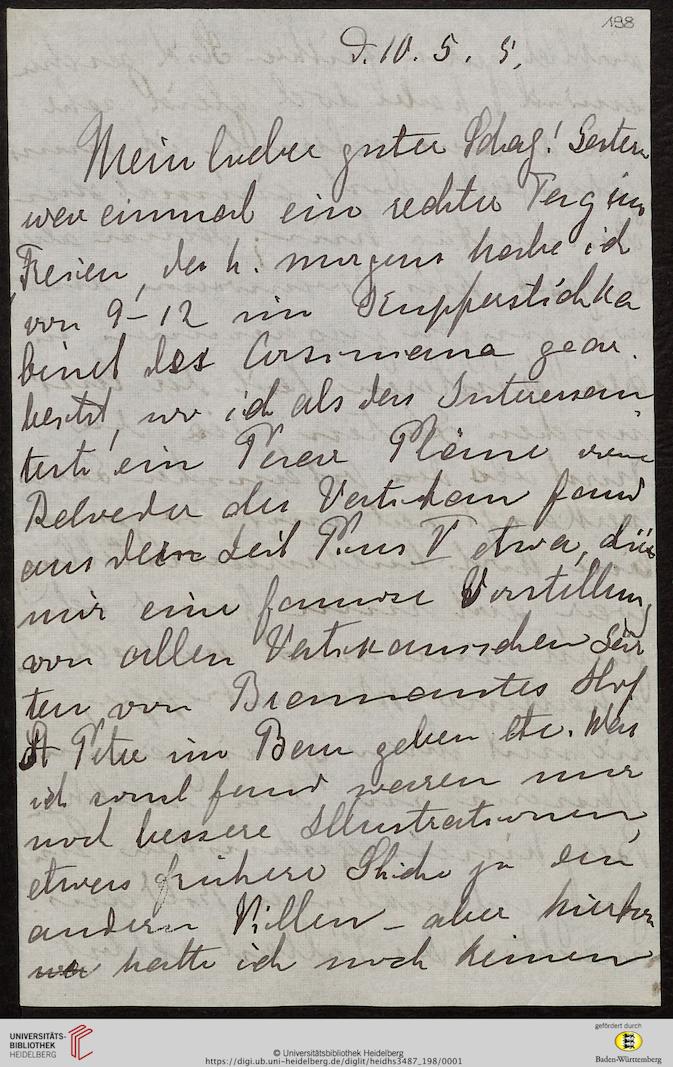 198
D. 10. 5. 5.
Mein lieber guter Schatz! Gestern
war einmal ein rechter Tag im
Freien, des h. morgens habe ich
von 9–12 im Kupferstichka
binet der Corsiniana gear.
beitet, wo ich als den Interessan
testen ein Paar Pläne vom
Belvedere des Vatikan fand
aus der Zeit Pius V etwa, die
mir eine famose Vorstellung
von allen Vatikanischen Gär
ten von Bramantes Hof
St Peter im Bau geben etc. Was
ich sonst fand waren nur
noch bessere Illustrationen,
etwas frühere Stiche zu den
andern Villen – aber hierbon
hatte ich noch keinen
UNIVERSITÄTS-
BIBLIOTHEK
HEIDELBERG
© Universitätsbibliothek Heidelberg
https://digi.ub.uni-heidelberg.de/diglit/heidhs3487_198/0001
gefördert durch
Baden-Württemberg